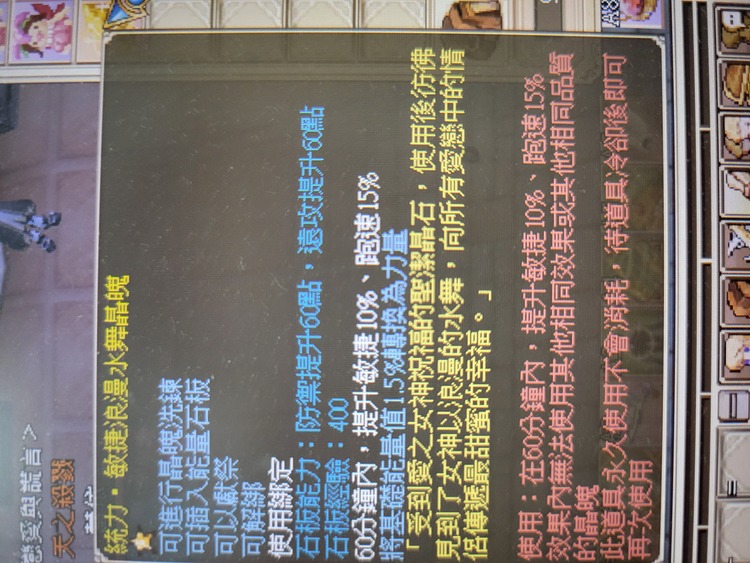 戀愛與謊言>
天之殺戮
統力·敏捷浪漫水舞晶魄
可進行晶魄洗鍊
可插入能量石板
可以獻祭
可解綁
使用綁定
石板能力：防禦提升60點，遠攻提升60點
石板經驗：400
60分鐘內，提升敏捷10%、跑速15%
將基礎能量值1.5%轉換為力量
「受到愛之女神祝福的聖潔晶石，使用後彷彿
見到了女神以浪漫的水舞，向所有愛戀中的情
侶傳遞最甜蜜的幸福。」
使用：在60分鐘內，提升敏捷10%、跑速15%
效果內無法使用其他相同效果或其他相同品質
的晶魄
此道具永久使用不會消耗，待道具冷卻後即可
再次使用